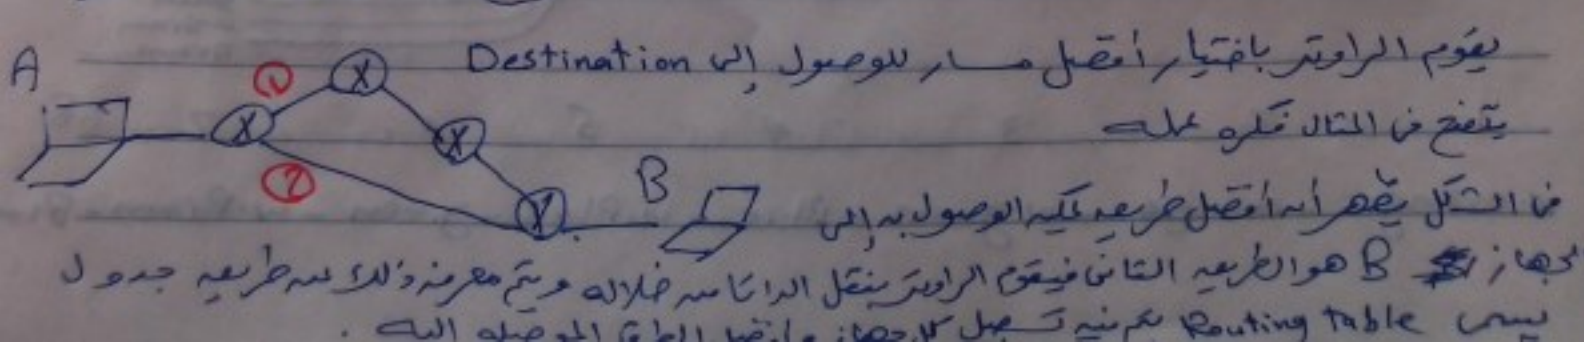 A
يقوم الراوتر باختيار أفضل مسار للوصول إلى Destination
1
يتضح فى المثال فكره عمله
2
B
فى الشكل يظهر أن أفضل طريق يمكن الوصول به إلى
جهاز B هو الطريق الثانى فيقوم الراوتر بنقل الداتا من خلاله ويتم معرفه ذلك عن طريق جدول
يسمى Routing table يتم فيه تسجيل كل جهاز وأفضل الطرق الموصله اليه .